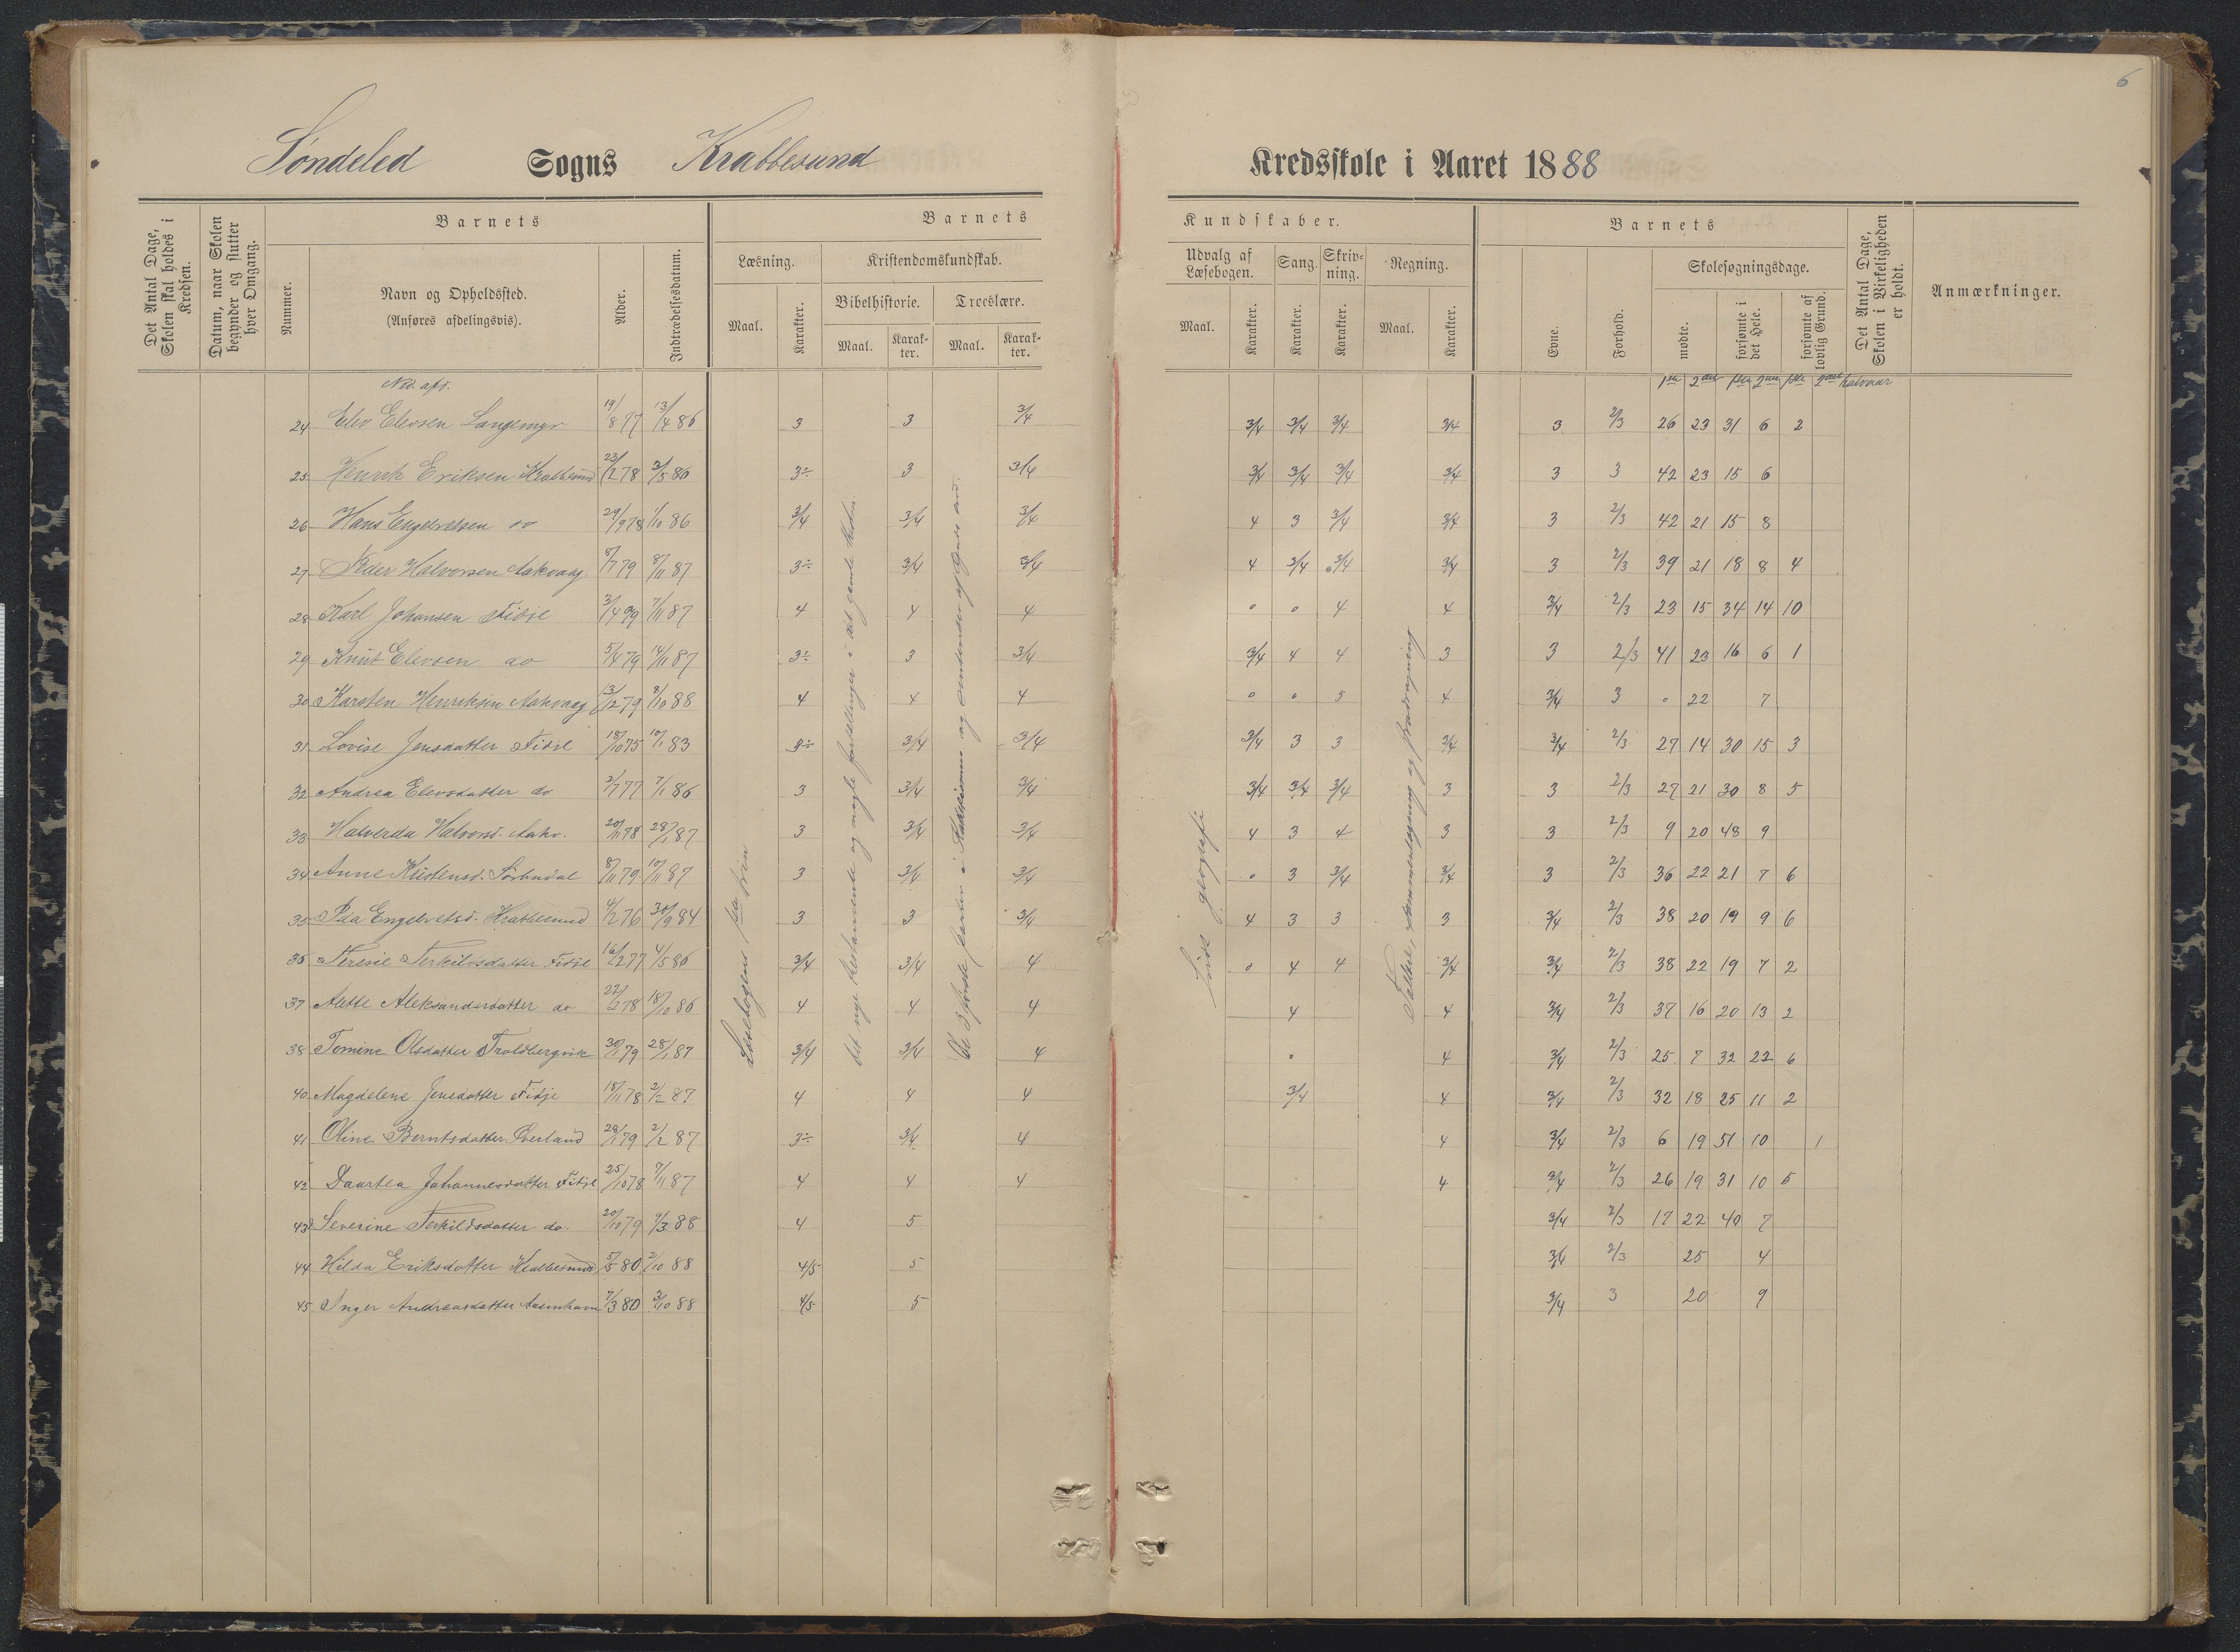 6
Søndeled Sogns Krabbesund Kredsskole i Aaret 1888
Det Antal Dage, Skolen skal holdes i Kredsen.
Datum, naar Skolen begynder og slutter hver Omgang.
Barnets
Nummer.
Navn og Opholdssted.
(Anføres afdelingsvis).
Alder.
Indtrædelsesdatum.
Barnets Kundskaber.
Læsning.
Maal.
Karakter.
Kristendomskundskab.
Bibelhistorie.
Maal.
Karakter.
Troeslære.
Maal.
Karakter.
Udvalg af Læsebogen.
Maal.
Karakter.
Sang.
Karakter.
Skrivning.
Karakter.
Regning.
Maal.
Karakter.
Barnets
Evne.
Forhold.
Skolesøgningsdage.
mødte.
forsømte i det Hele.
forsømte af lovlig Grund.
Det Antal Dage, Skolen i Virkeligheden er holdt.
Anmærkninger.
Ned. afd. 1ste 2det 1ste 2det 1ste 2det halvaar
24 Elev Elevsen Langemyr 19/8 77 13/4 86 3 3 3/4 3/4 3/4 3/4 3/4 3 2/3 26 23 31 6 2
25 Henrik Eriksen Krabbesund 23/12 78 3/5 86 3÷ 3 3/4 3/4 3/4 3/4 3/4 3 3 42 23 15 6
26 Hans Engebretsen do 29/9 78 1/10 86 3/4 3/4 3/4 4 3 3/4 3/4 3 2/3 42 21 15 8
27 Peder Halvorsen Aakvaag 8/7 79 8/11 87 3÷ 3/4 3/4 4 3/4 3/4 3/4 3 2/3 39 21 18 8 4
28 Karl Johansen Fidje 3/4 79 7/11 87 4 4 4 0 0 4 4 3/4 2/3 23 15 34 14 10
29 Knut Elevsen do 5/4 79 14/11 87 3÷ 3 3/4 3/4 4 4 3 3 2/3 41 23 16 6 1
30 Karsten Henriksen Aakvaag 13/12 79 3/10 88 4 4 4 0 0 5 4 3/4 3 0 22 7
31 Lovise Jensdatter Fidje 18/10 75 10/1 83 3÷ 3/4 3/4 3/4 3 3 3/4 3/4 2/3 27 14 30 15 3
32 Andrea Elevsdatter do 2/7 77 7/1 86 3 3/4 3/4 3/4 3/4 3/4 3 3 2/3 27 21 30 8 5
33 Halverda Halvorsd. Aakv. 20/11 78 28/1 87 3 3/4 3/4 4 3 4 3 3 2/3 9 20 48 9
34 Anne Kristensd. Sørbndal 8/11 79 10/11 87 3 3/4 3/4 0 3 3/4 3/4 3 2/3 36 22 21 7 6
35 Pea Engebretsd. Krabbesund 4/2 76 30/9 84 3 3 3/4 4 3 3 3 3/4 2/3 38 20 19 9 6
36 Teresie Terkildsdatter Fidje 16/2 77 4/5 86 3/4 3/4 4 0 4 4 3/4 3/4 2/3 38 22 19 7 2
37 Aette Aleksandersdatter do 22/2 78 18/10 86 4 4 4 4 4 3/4 2/3 37 16 20 13 2
38 Tomine Olsdatter Troldbergvik 30/1 79 28/1 87 3/4 3/4 4 0 4 3/4 2/3 25 7 32 22 6
40 Magdelene Jensdatter Fidje 18/11 78 2/2 87 4 4 4 3/4 4 3/4 2/3 32 18 25 11 2
41 Oline Berntsdatter Øverland 28/1 79 2/2 87 3÷ 3/4 4 4 3/4 2/3 6 19 51 10 1
42 Daartea Johannesdatter Fidje 25/10 78 7/11 87 4 4 4 4 3/4 2/3 26 19 31 10 5
43 Severine Terkildsdatter do. 20/10 79 9/3 88 4 5 3/4 2/3 17 22 40 7
44 Hilda Eriksdatter Krabbesund 5/5 80 2/10 88 4/5 5 3/4 2/3 25 4
45 Inger Andreasdatter 7/3 80 3/10 88 4/5 5 3/4 3 20 9
Læsebogens 1ste trin
Det nye testamente og nogle fortellinger i det gamle testm.
De 3 første parter i
Lidt geografi
Tallære, sammenlægning og fradragning